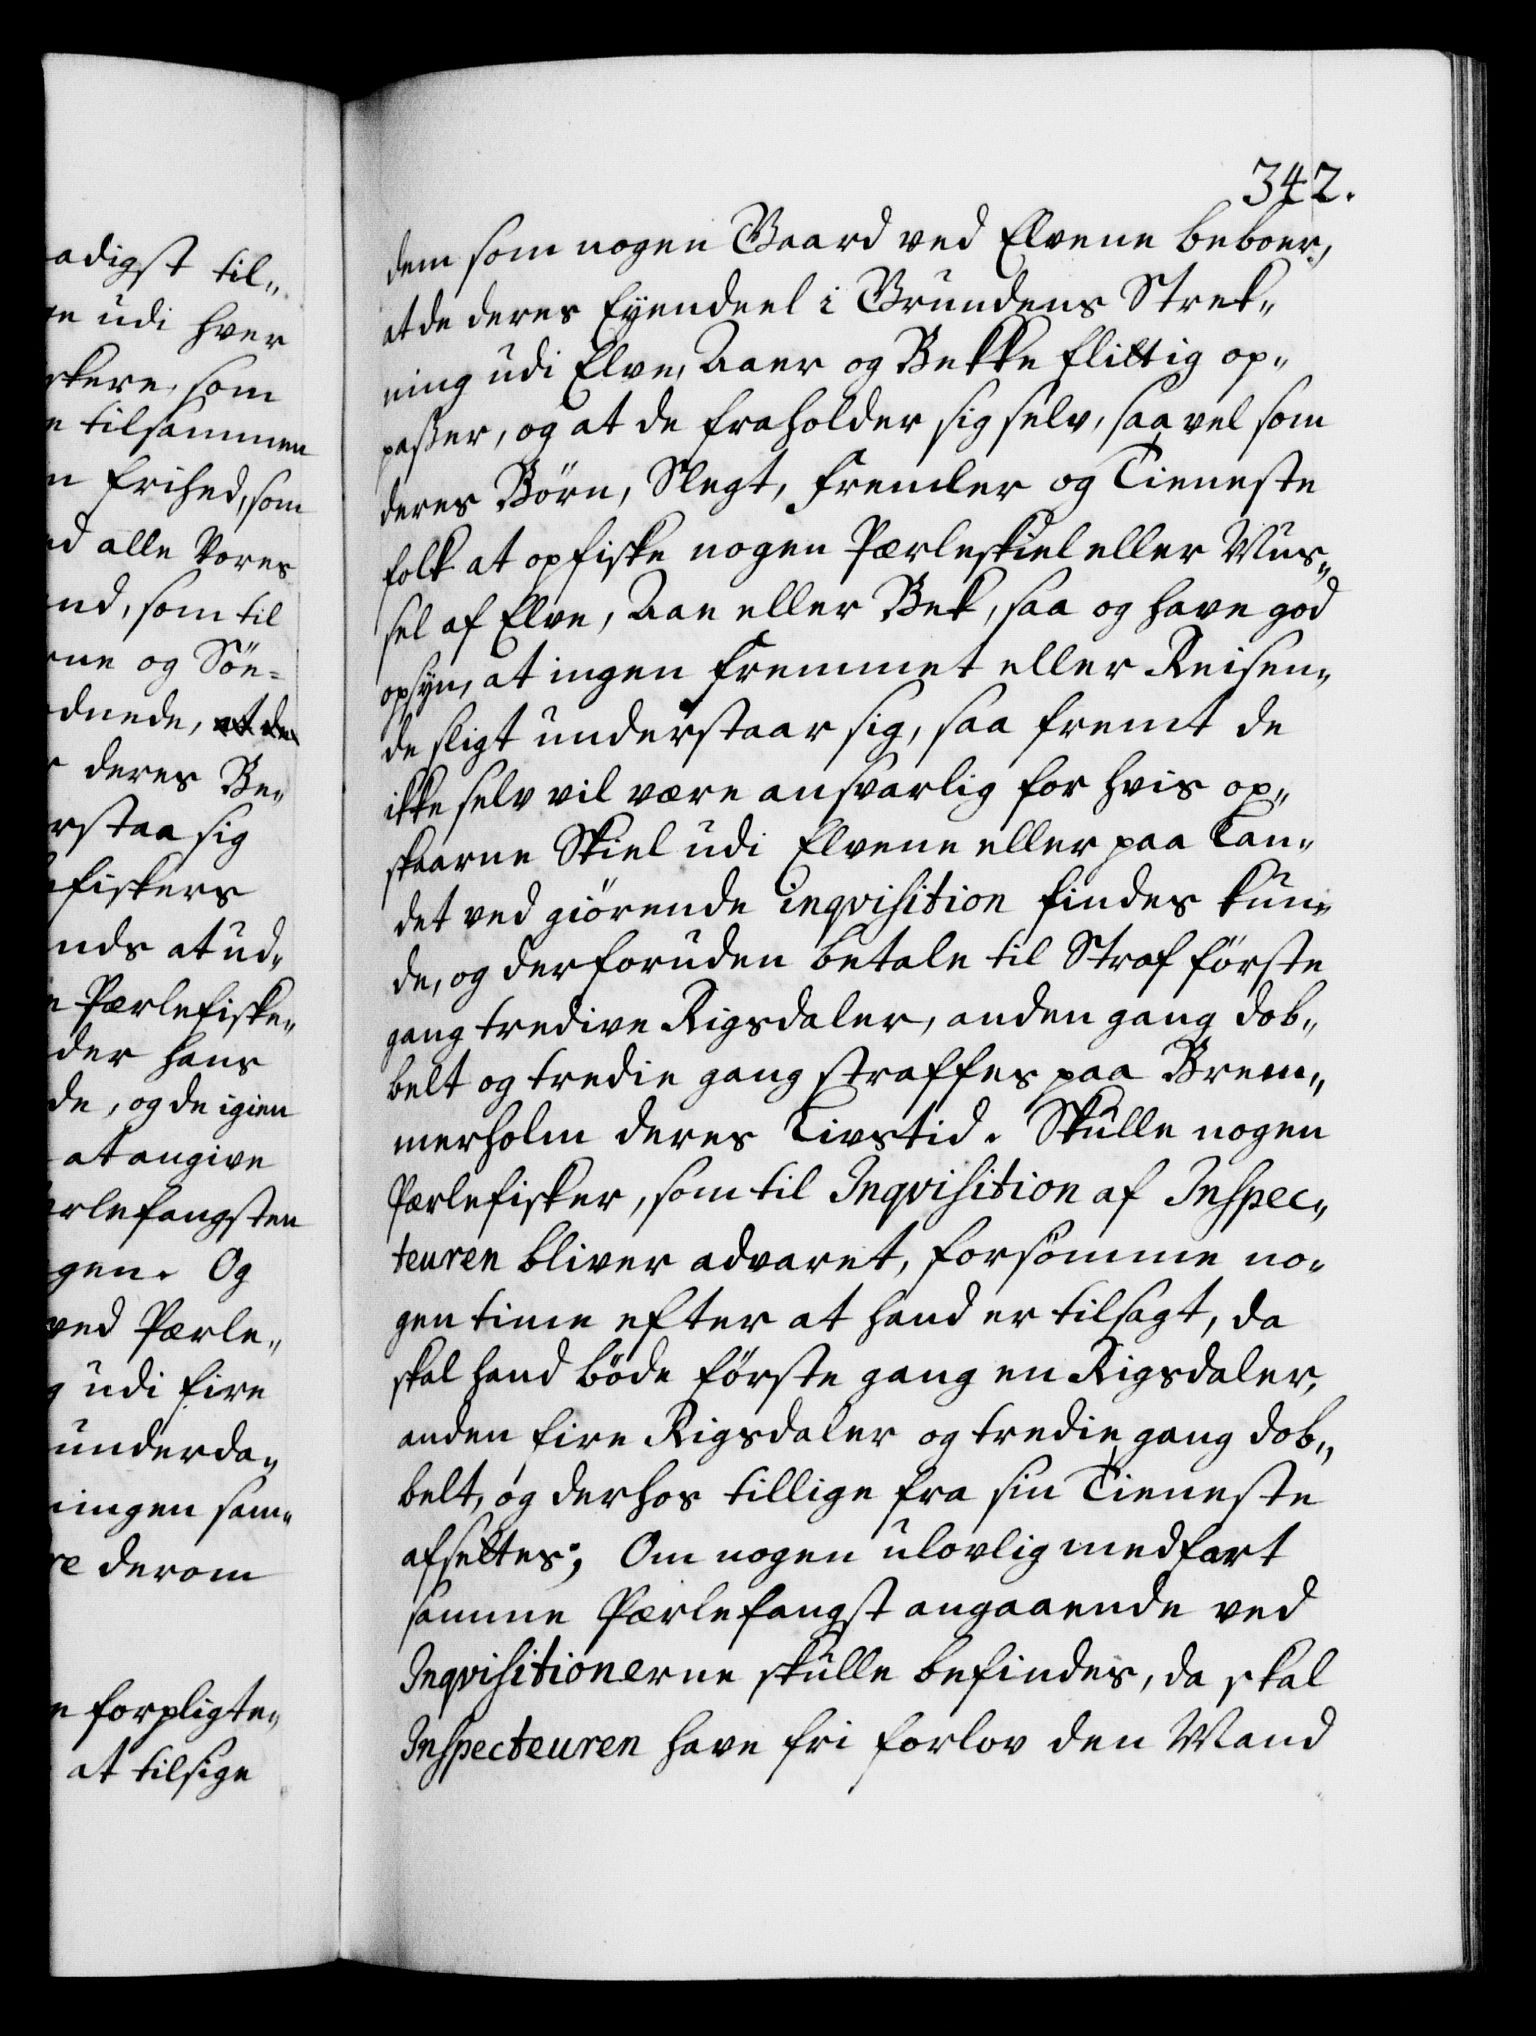 adigst til„
ge udi hver
skere, som
e tilsammen
n frihed, som
ed alle Vores
end, som til
rne og Søn=
dnede, at de
r deres Be„
rstaa sig
efiskers
nds at ud„
e Pærlefiske„
der hans
de, og de igien
at angive
erlefangsten
gen. Og
ved Pærle„
g udi fire
underda„
ningen sam„
re derom
e forpligte„
at tilsige
342.
dem som nogen Gaard ved Elvene beboer,
at de deres Eyendeel i Grundens Strek„
ning udi Elve, Aaer og Bekke flittig op„
paßer, og at de fraholder sig selv, saa vel som
deres Börn, Slegt, fremder og Tieneste
folk at opfiske nogen Pærleskiel eller Mus„
sel af Elve, Aae eller Bek, saa og have god
opsyn, at ingen fremmet eller Reisen„
de sligt understaar sig, saa fremt de
ikke selv vil være ansvarlig for hvis op„
skaarne Skiel udi Elvene eller paa Lan„
det ved giörende inqvisition findes kun„
de, og derforuden betale til Straf förste
gang tredive Rigsdaler, anden gang dob„
belt og tredie gang straffes paa Brem„
merholm deres Livstid. Skulle nogen
Pærlefisker, som til Inqvisition af Inspec„
teuren bliver advaret, forsömme no„
gen time efter at hand er tilsagt, da
skal hand böde förste gang en Rigsdaler,
anden fire Rigsdaler og tredie gang dob„
belt, og derhos tillige fra sin Tieneste
afsettes; Om nogen ulovlig medfart
samme Pærlefangst angaaende ved
Inqvisitionerne skulle befindes, da skal
Inspecteuren have fri forlov den Mand